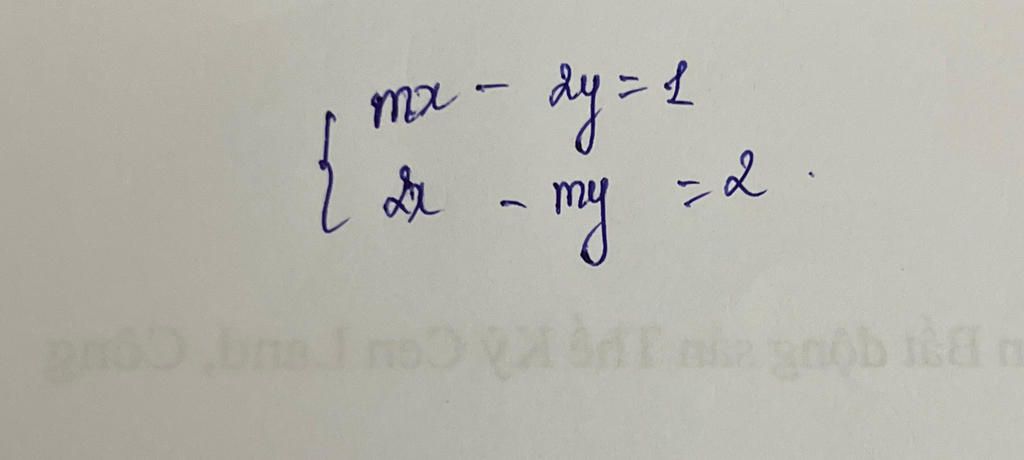 mx - 2y = 1
2x - my = 2.
n Bất động sản Thế Kỷ Cen Land, Công